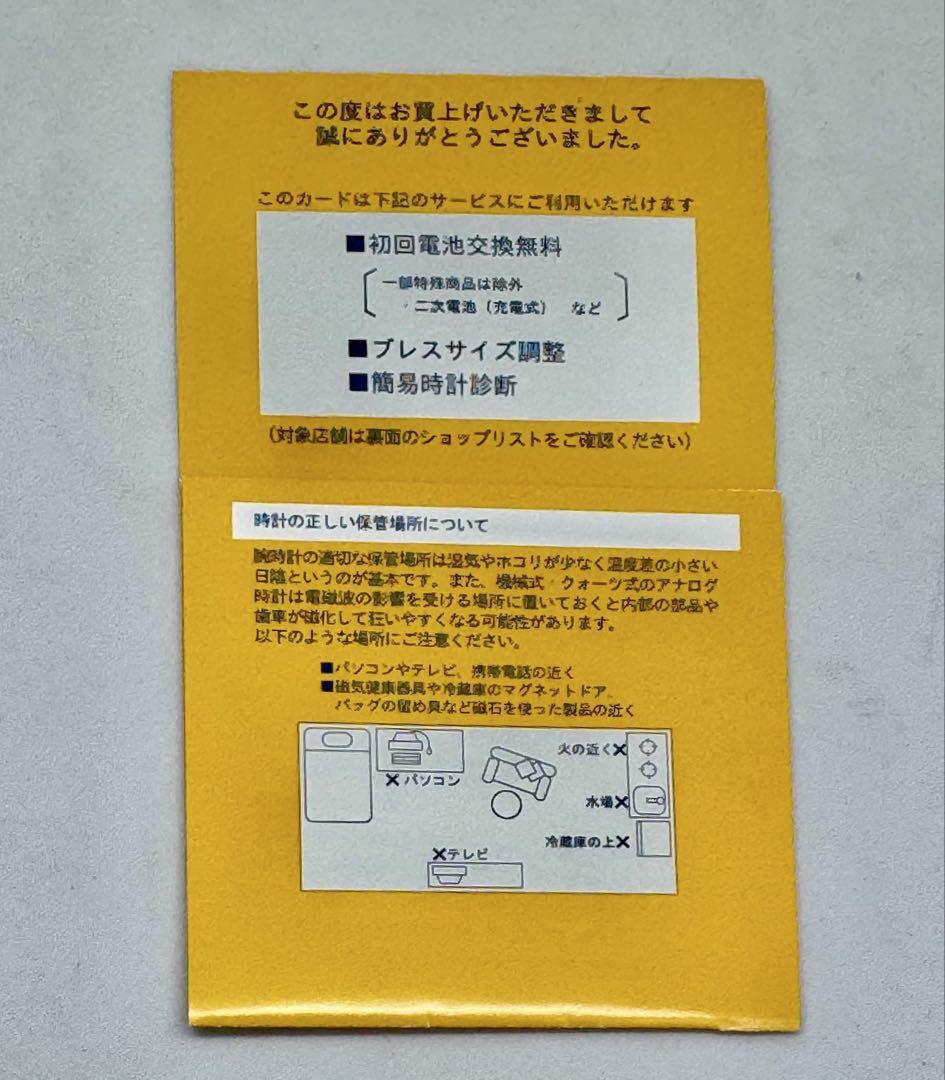 この度はお買上げいただきまして
誠にありがとうございました。
このカードは下記のサービスにご利用いただけます
■初回電池交換無料
一部特殊商品は除外
・二次電池（充電式） など
■ブレスサイズ調整
■簡易時計診断
（対象店舗は裏面のショップリストをご確認ください）
時計の正しい保管場所について
腕時計の適切な保管場所は湿気やホコリが少なく温度差の小さい
日陰というのが基本です。また、機械式・クォーツ式のアナログ
時計は電磁波の影響を受ける場所に置いておくと内部の部品や
歯車が磁化して狂いやすくなる可能性があります。
以下のような場所にご注意ください。
■パソコンやテレビ、携帯電話の近く
■磁気健康器具や冷蔵庫のマグネットドア、
バッグの留め具など磁石を使った製品の近く
火の近く✕
✕パソコン
水場✕
冷蔵庫の上✕
✕テレビ